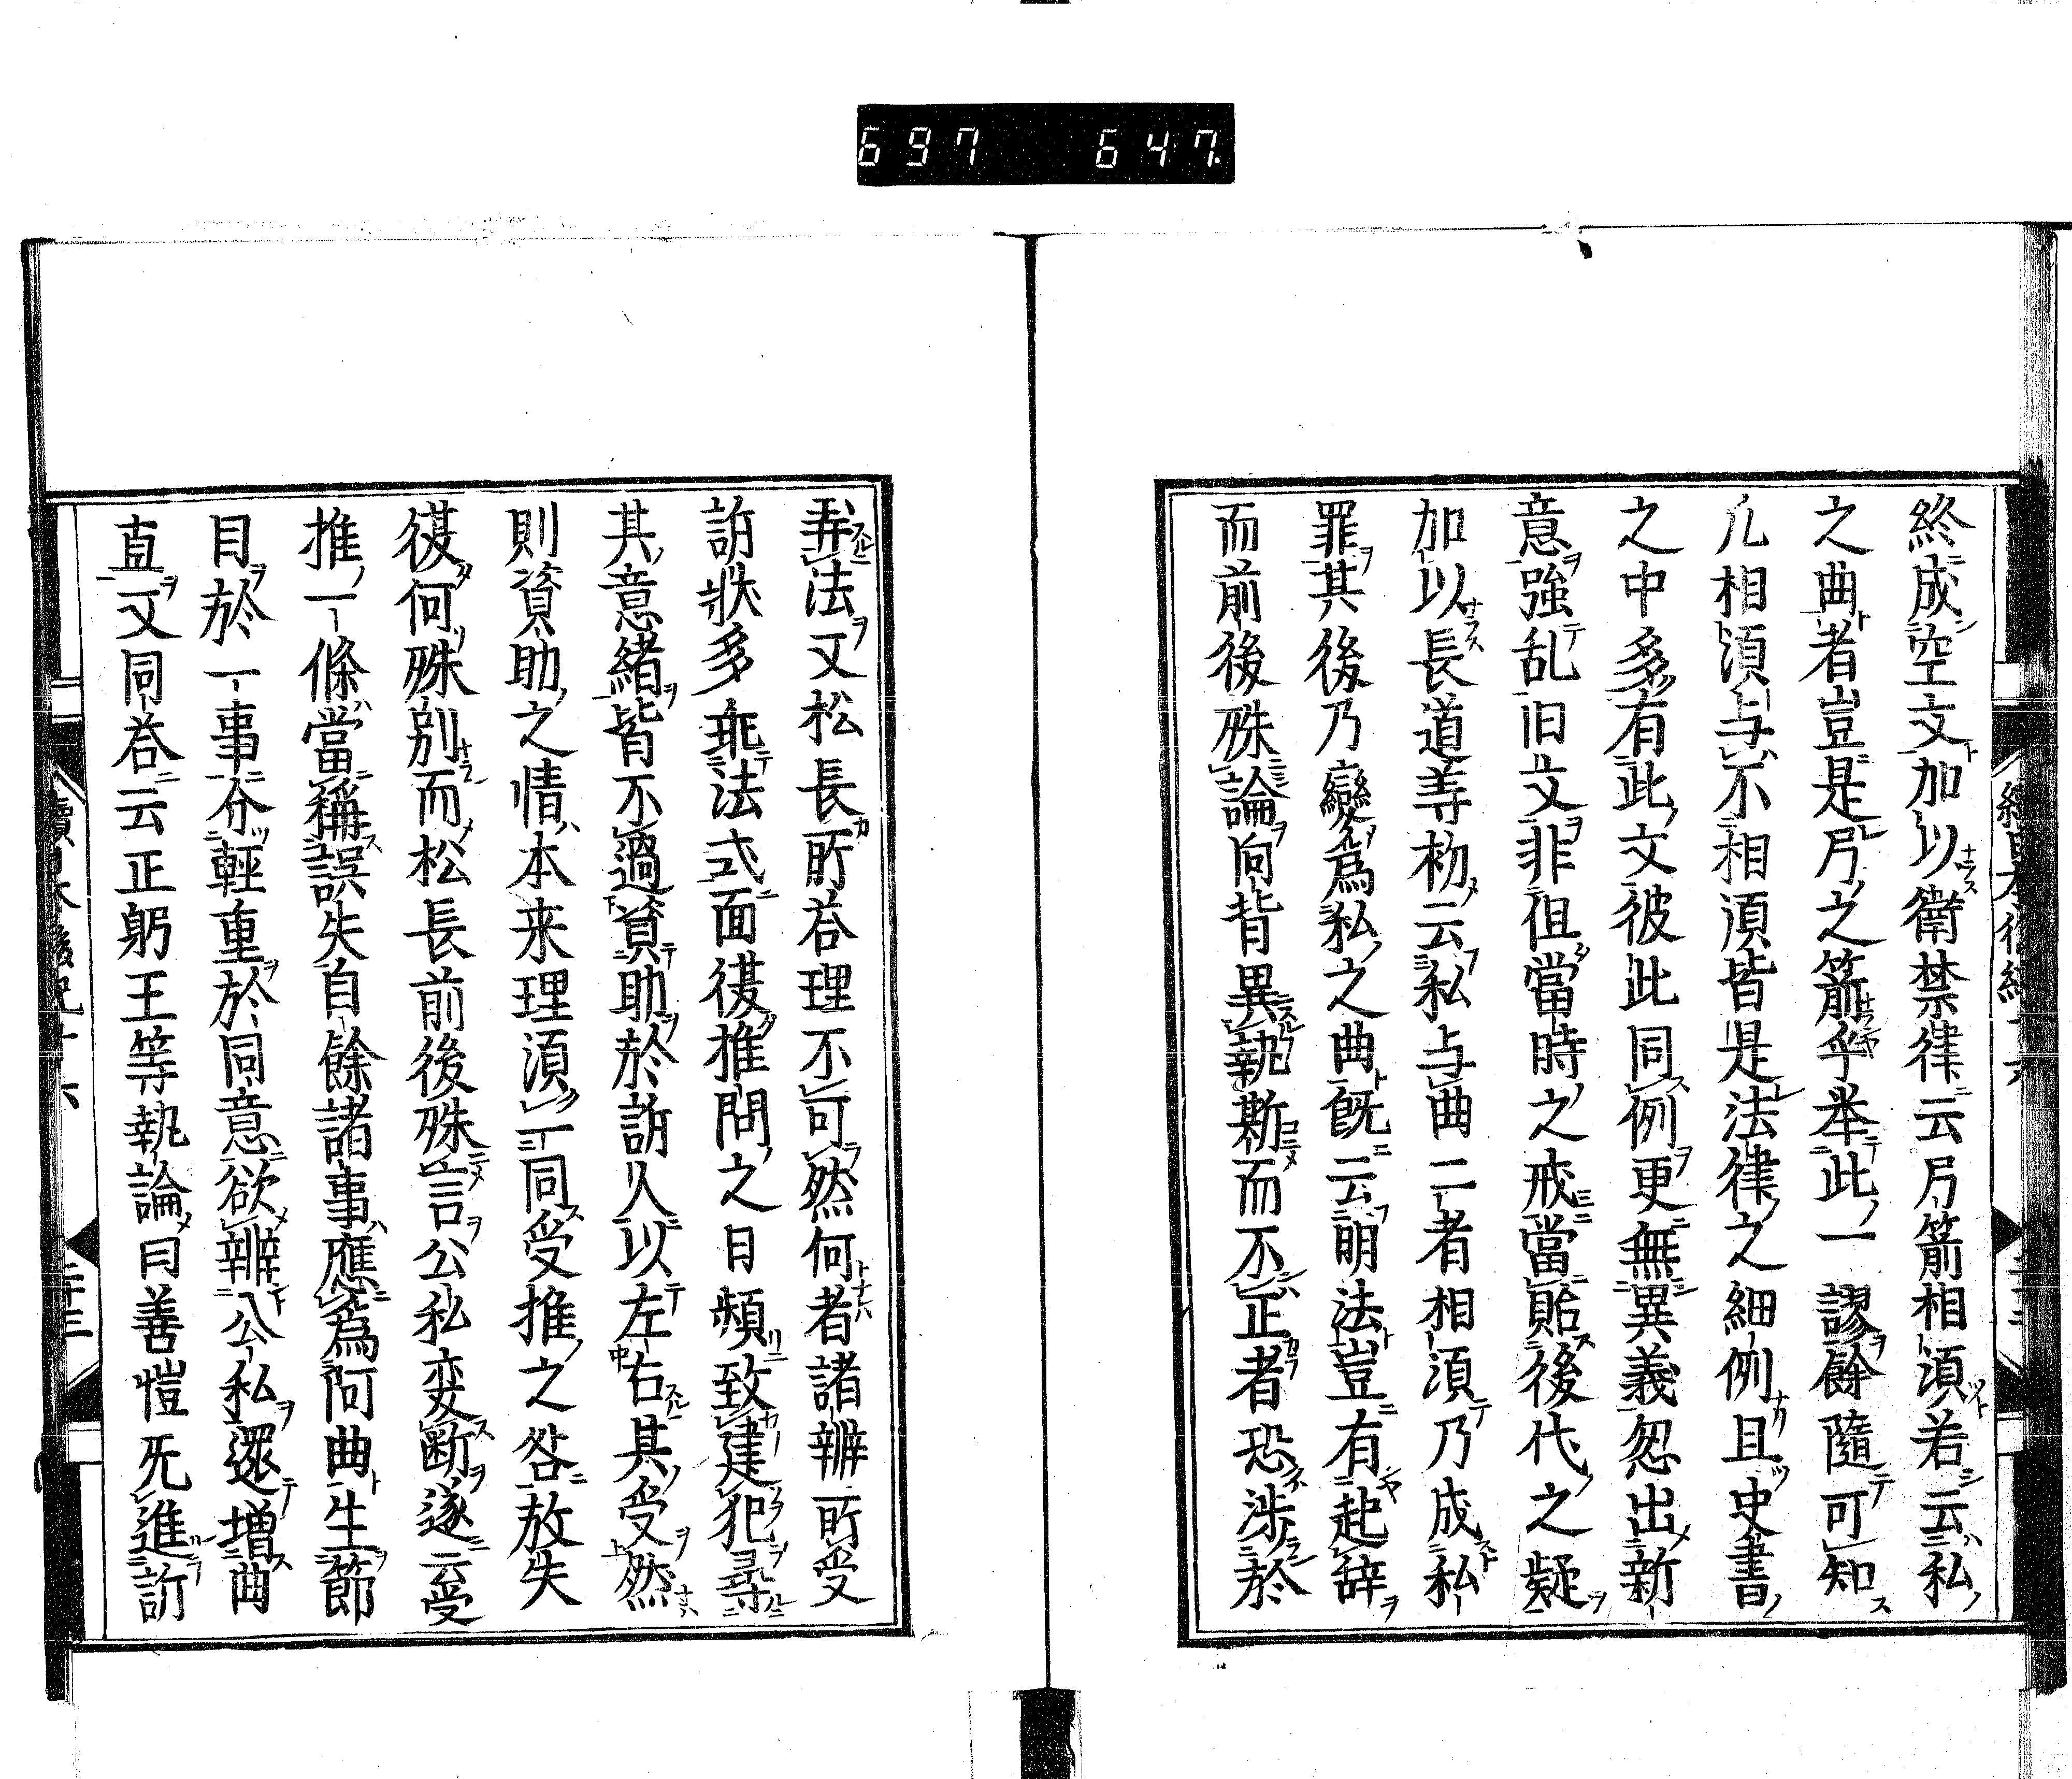 697 647.
終成空文加以衛禁律云弓箭相湏若云私
之曲者豈是弓之箭乎举此一謬餘隨可知
凡相湏与不相湏皆是法律之細例且史書
之中多有此文彼此同例更無異義忽出新
意強乱旧文非徂當時之戒當貽後代之疑
加以長道等柩云私与曲二者相湏乃成私
罪其後乃變爲私之曲既云明法豈有起辞
而前後殊論向背異執斯而不正者恐渉於
弄法又松長所答理不可然何者諸辨所受
訴狀多乖法式面彼推問之日頻致建犯尋
其意緒皆不過資助於訴人以左右其受然
則資助之情本来理湏一同受推之咎放失
彼何殊別而松長前後殊言公私变断遂云受
推一條當稱誤失自餘諸事應爲阿曲生節
目於一事分輕重於同意欲辨公私還増曲
直又同答云正躬王等執論曰善愷旡進訴